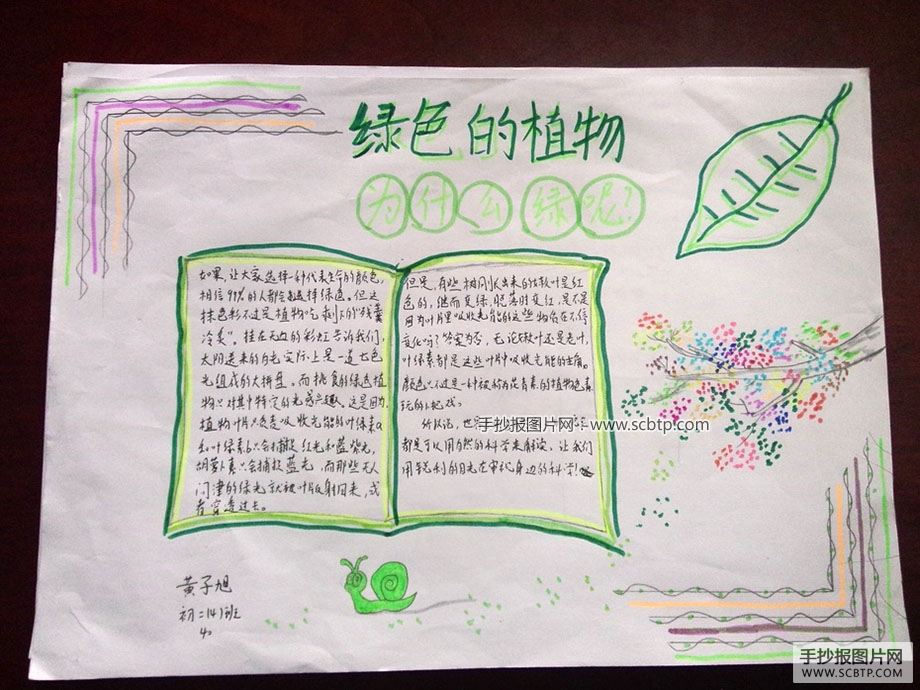 绿色的植物
为什么绿呢?
如果,让大家选择一种代表生命的颜色,
相信99%的人都会选择绿色。但这
抹色彩不过是植物吃剩下的“残羹
冷炙”。挂在天边的彩虹告诉我们,
太阳送来的白光实际上是一道七色
光组成的大拼盘。而挑食的绿色植
物只对其中特定的光感兴趣。这是因为
植物叶片负责吸收光能的叶绿素a
和叶绿素b只会捕捉红光和蓝紫光,
胡萝卜素只会捕捉蓝光,而那些无人
问津的绿光就被叶片反射回来,或
者穿透过去。
但是,有些树刚长出来的嫩叶是红
色的,继而变绿,脱落时变红,是不是
因为叶片里吸收光能的这些物质在不停
变化呢?答案为否,无论嫩叶还是老叶,
叶绿素都是这些叶片中吸收光能的主角。
颜色只不过是一种被称为花青素的植物色素
玩的小把戏。
所以说,世
都是可以用自然的科学来解读,让我们
用锐利的目光去审视身边的科学!
手抄报图片网 - www.scbtp.com
黄子旭
初二(4)班
42
手抄报图片网
WWW.SCBTP.COM